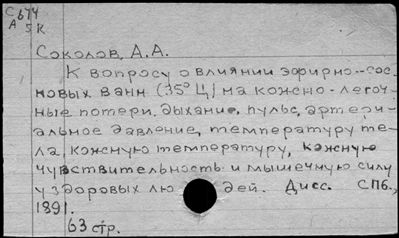 С 674
А 5К
Соколов, А.А.
К вопросу о влиянии эфирно-сос-
новых ванн (35° Ц) на кожно-легоч-
ные потери, дыхание, пульс, артери-
альное давление, температуру те-
ла, кожную температуру, кожную
чувствительность и мышечную силу
у здоровых людей. Дисс. СПб.,
1891.
63 стр.